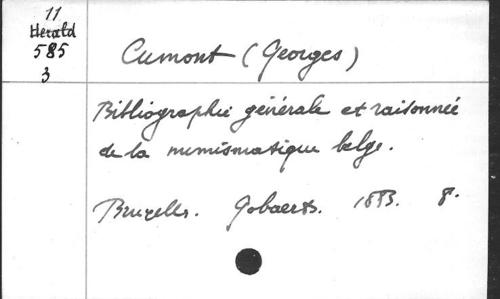 11
Herald
585
3
Cumont (Georges)
Bibliographie générale et raisonnée
de la numismatique belge.
Bruxelles. Gobaerts. 1883. 8°.